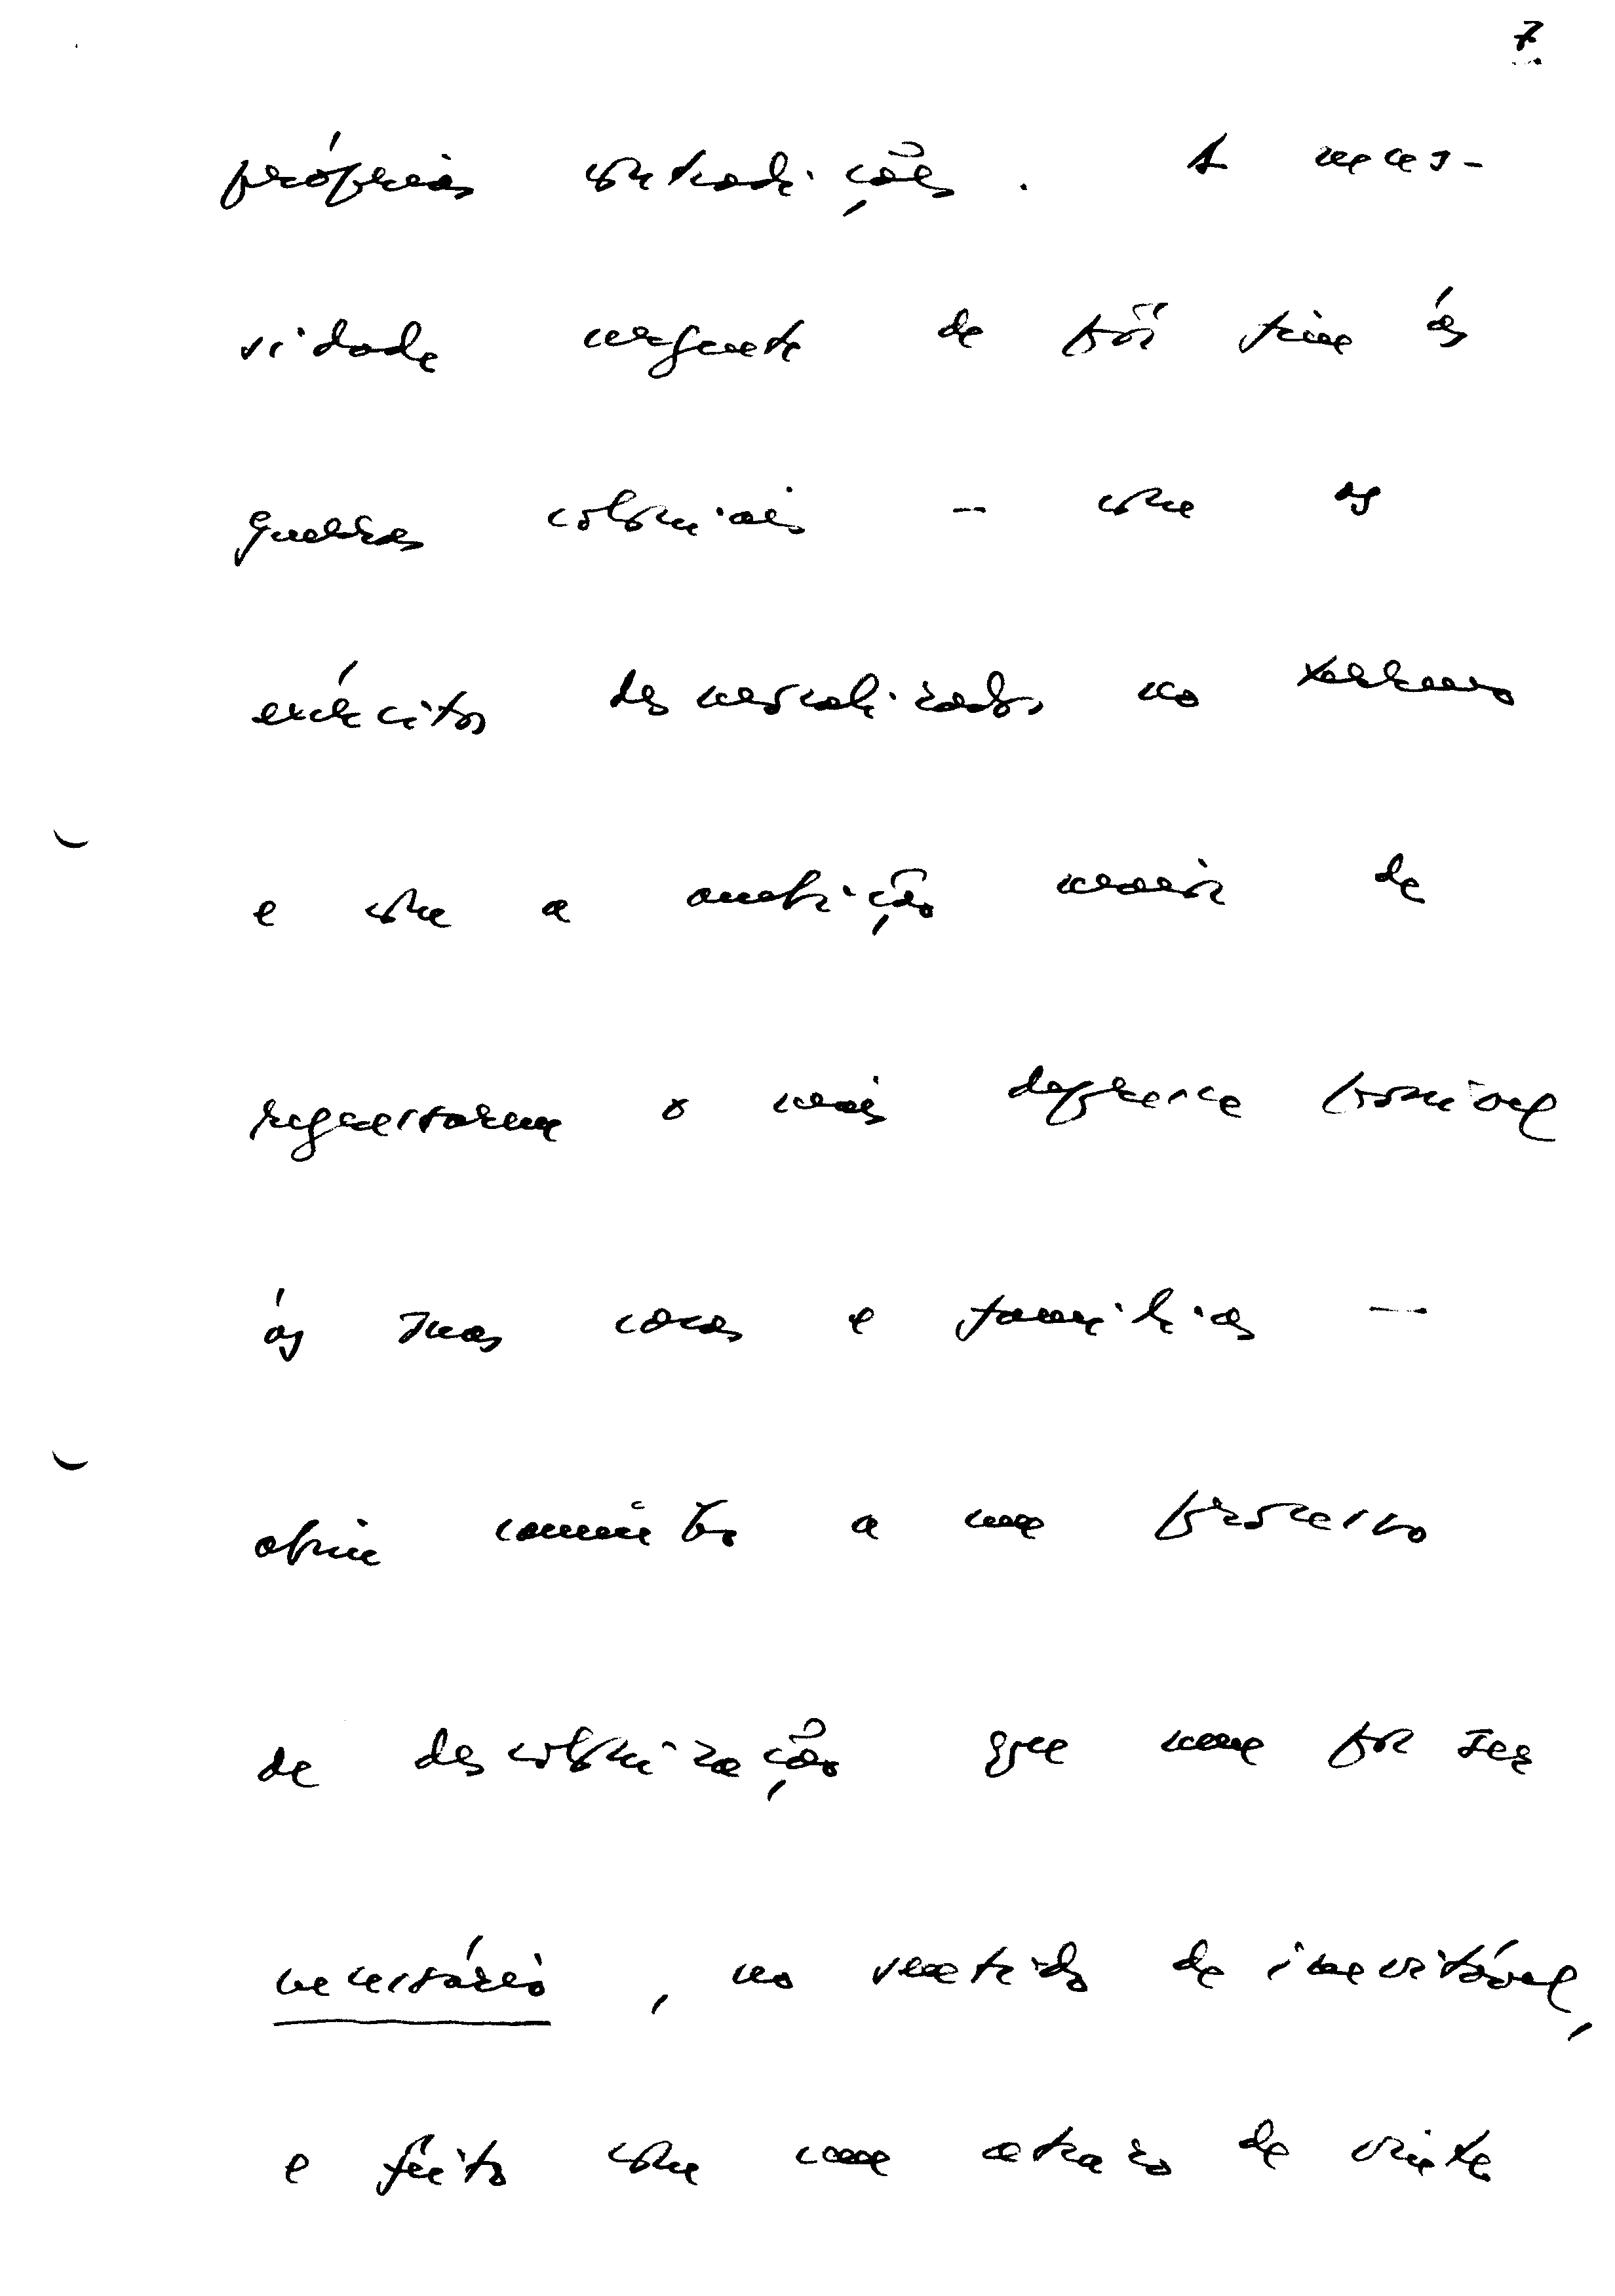 7
próprias contradições. A neces-
sidade urgente de pôr fim às
guerras coloniais - com os
exércitos desmoralizados no terreno
e com a ambição maior de
regressarem o mais depressa possível
às suas casas e famílias -
abriu caminho a um processo
de descolonização que nem por ser
necessário, no sentido de inevitável,
e feito com um atraso de vinte